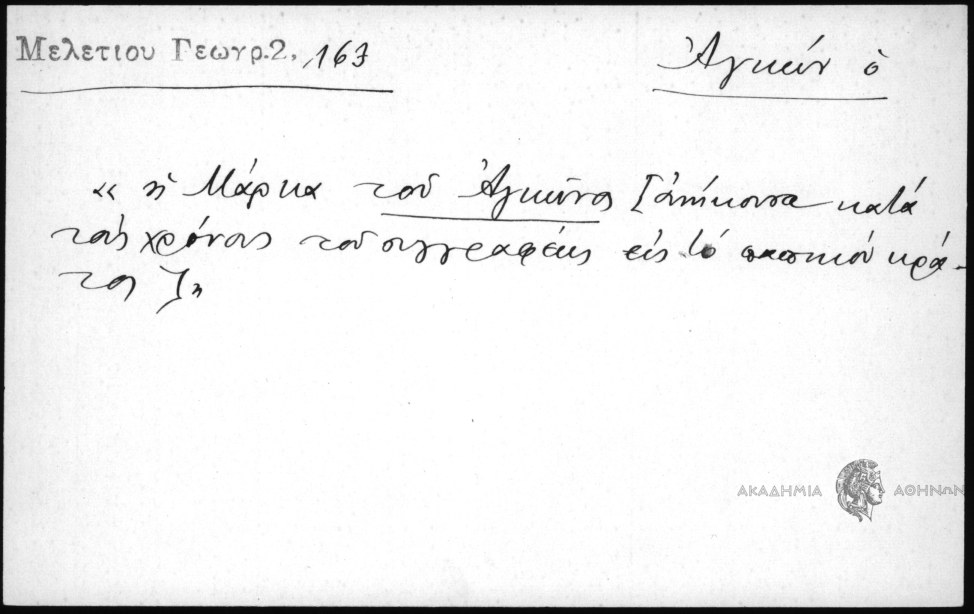 Μελετίου Γεωγρ.2, 163
Ἀγκών ὁ
« ἡ Μάρκα τοῦ Ἀγκῶνος [ἀνήκουσα κατά
τούς χρόνους τοῦ συγγραφέως εἰς τό παπικόν κρά-
τος]»
ΑΚΑΔΗΜΙΑ ΑΘΗΝΩΝ